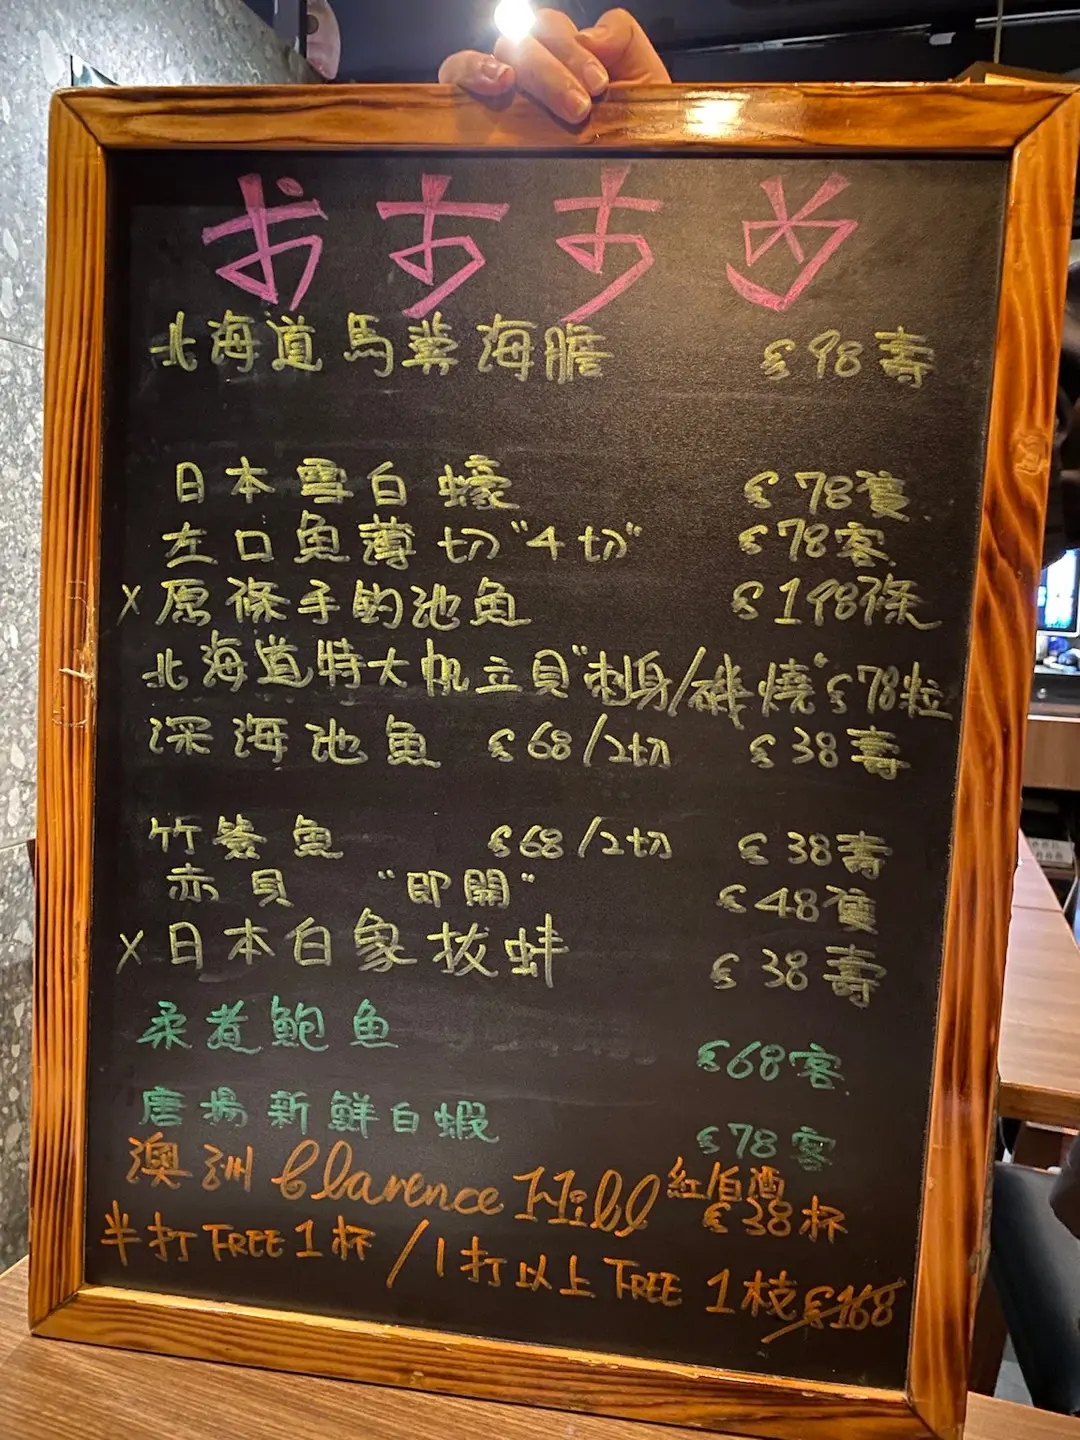 おすすめ
北海道馬糞海膽 $98壽
日本雪白蠔 $78隻
左口魚薄切"4切" $78客
X原條手釣池魚 $198條
北海道特大帆立貝"刺身/磯燒" $78粒
深海池魚 $68/2切 $38壽
竹筴魚 $68/2切 $38壽
赤貝 "即開" $48隻
X日本白象拔蚌 $38壽
柔煮鮑魚 $68客
唐揚新鮮白蝦 $78客
澳洲 Clarence Hill 紅/白酒 $38杯
半打 FREE 1杯 / 1打以上 FREE 1枝 $168